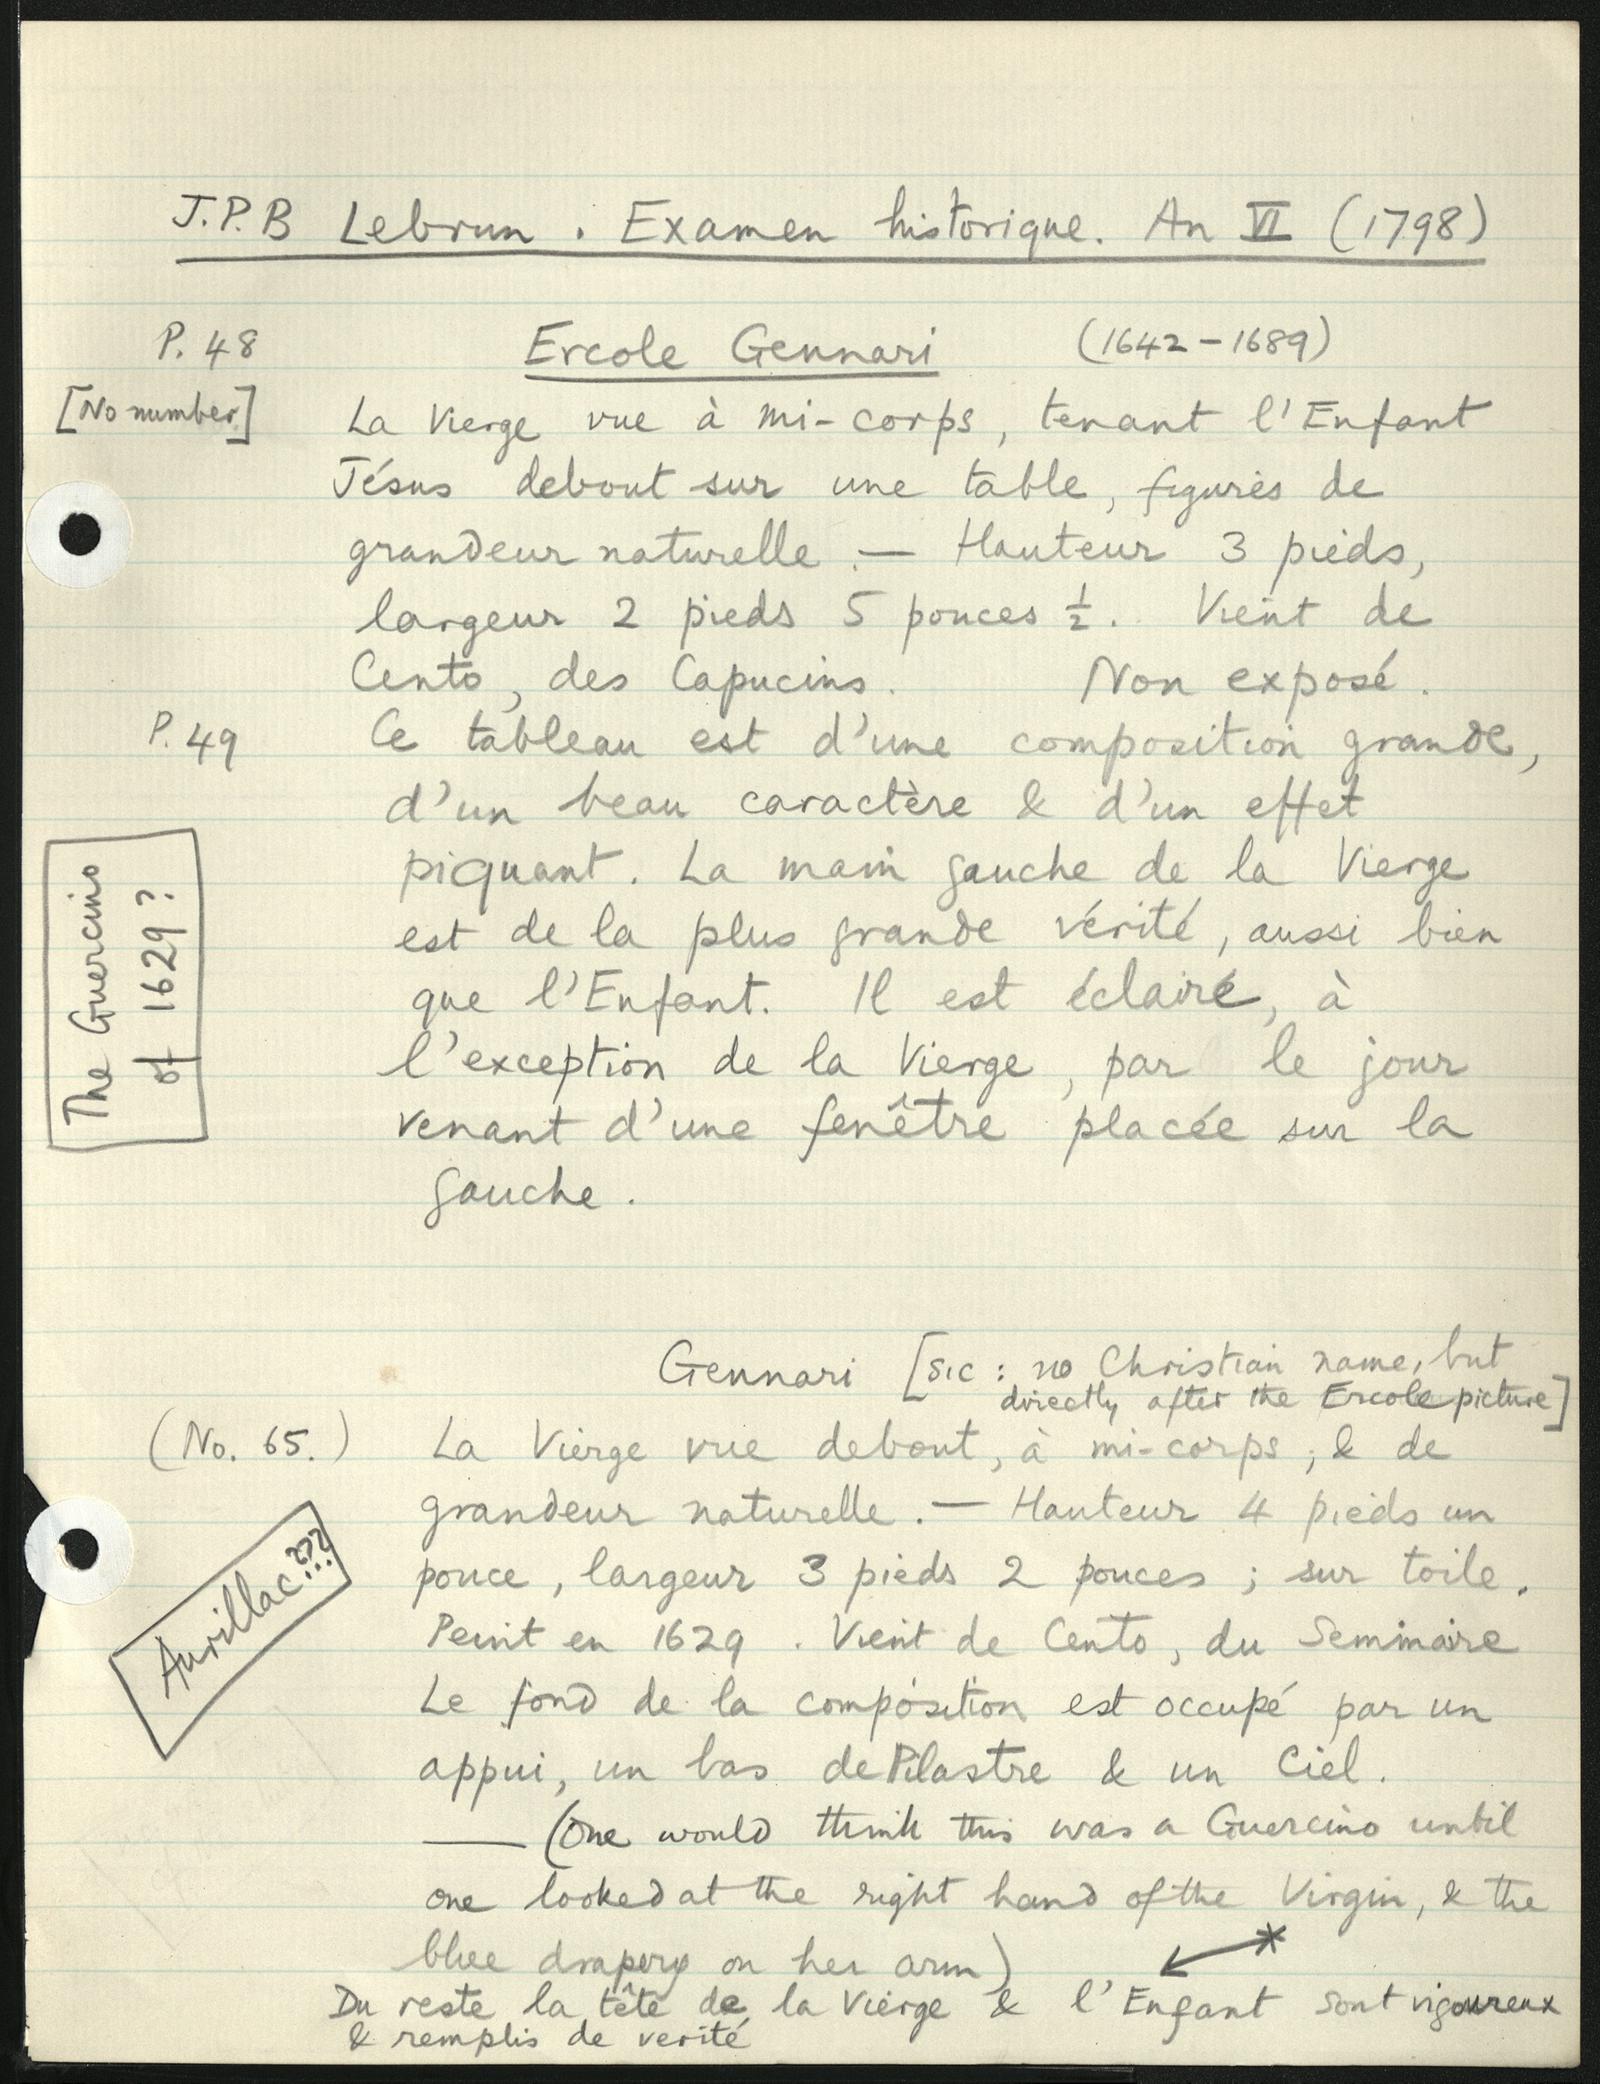 J.P.B Lebrun. Examen historique. An VI (1798)
P. 48
Ercole Gennari (1642-1689)
[No number]
La Vierge vue à mi-corps, tenant l'Enfant
Jésus debout sur une table, figures de
grandeur naturelle. — Hauteur 3 pieds,
largeur 2 pieds 5 pouces ½. Vient de
Cento, des Capucins. Non exposé.
P. 49
Ce tableau est d'une composition grande,
d'un beau caractère & d'un effet
piquant. La main gauche de la Vierge
est de la plus grande vérité, aussi bien
que l'Enfant. Il est éclairé, à
l'exception de la Vierge, par le jour
venant d'une fenêtre placée sur la
gauche.
The Guercino
of 1629?
Gennari [sic: no Christian name, but
directly after the Ercole picture]
(No. 65.)
La Vierge vue debout, à mi-corps, & de
grandeur naturelle. — Hauteur 4 pieds un
pouce, largeur 3 pieds 2 pouces; sur toile.
Peint en 1629. Vient de Cento, du Seminaire
Le fond de la composition est occupé par un
appui, un bas de Pilastre & un Ciel.
— (One would think this was a Guercino until
one looked at the right hand of the Virgin, & the
blue drapery on her arm) *
Du reste la tête de la Vierge & l'Enfant sont vigoureux
& remplis de verité
Aurillac???